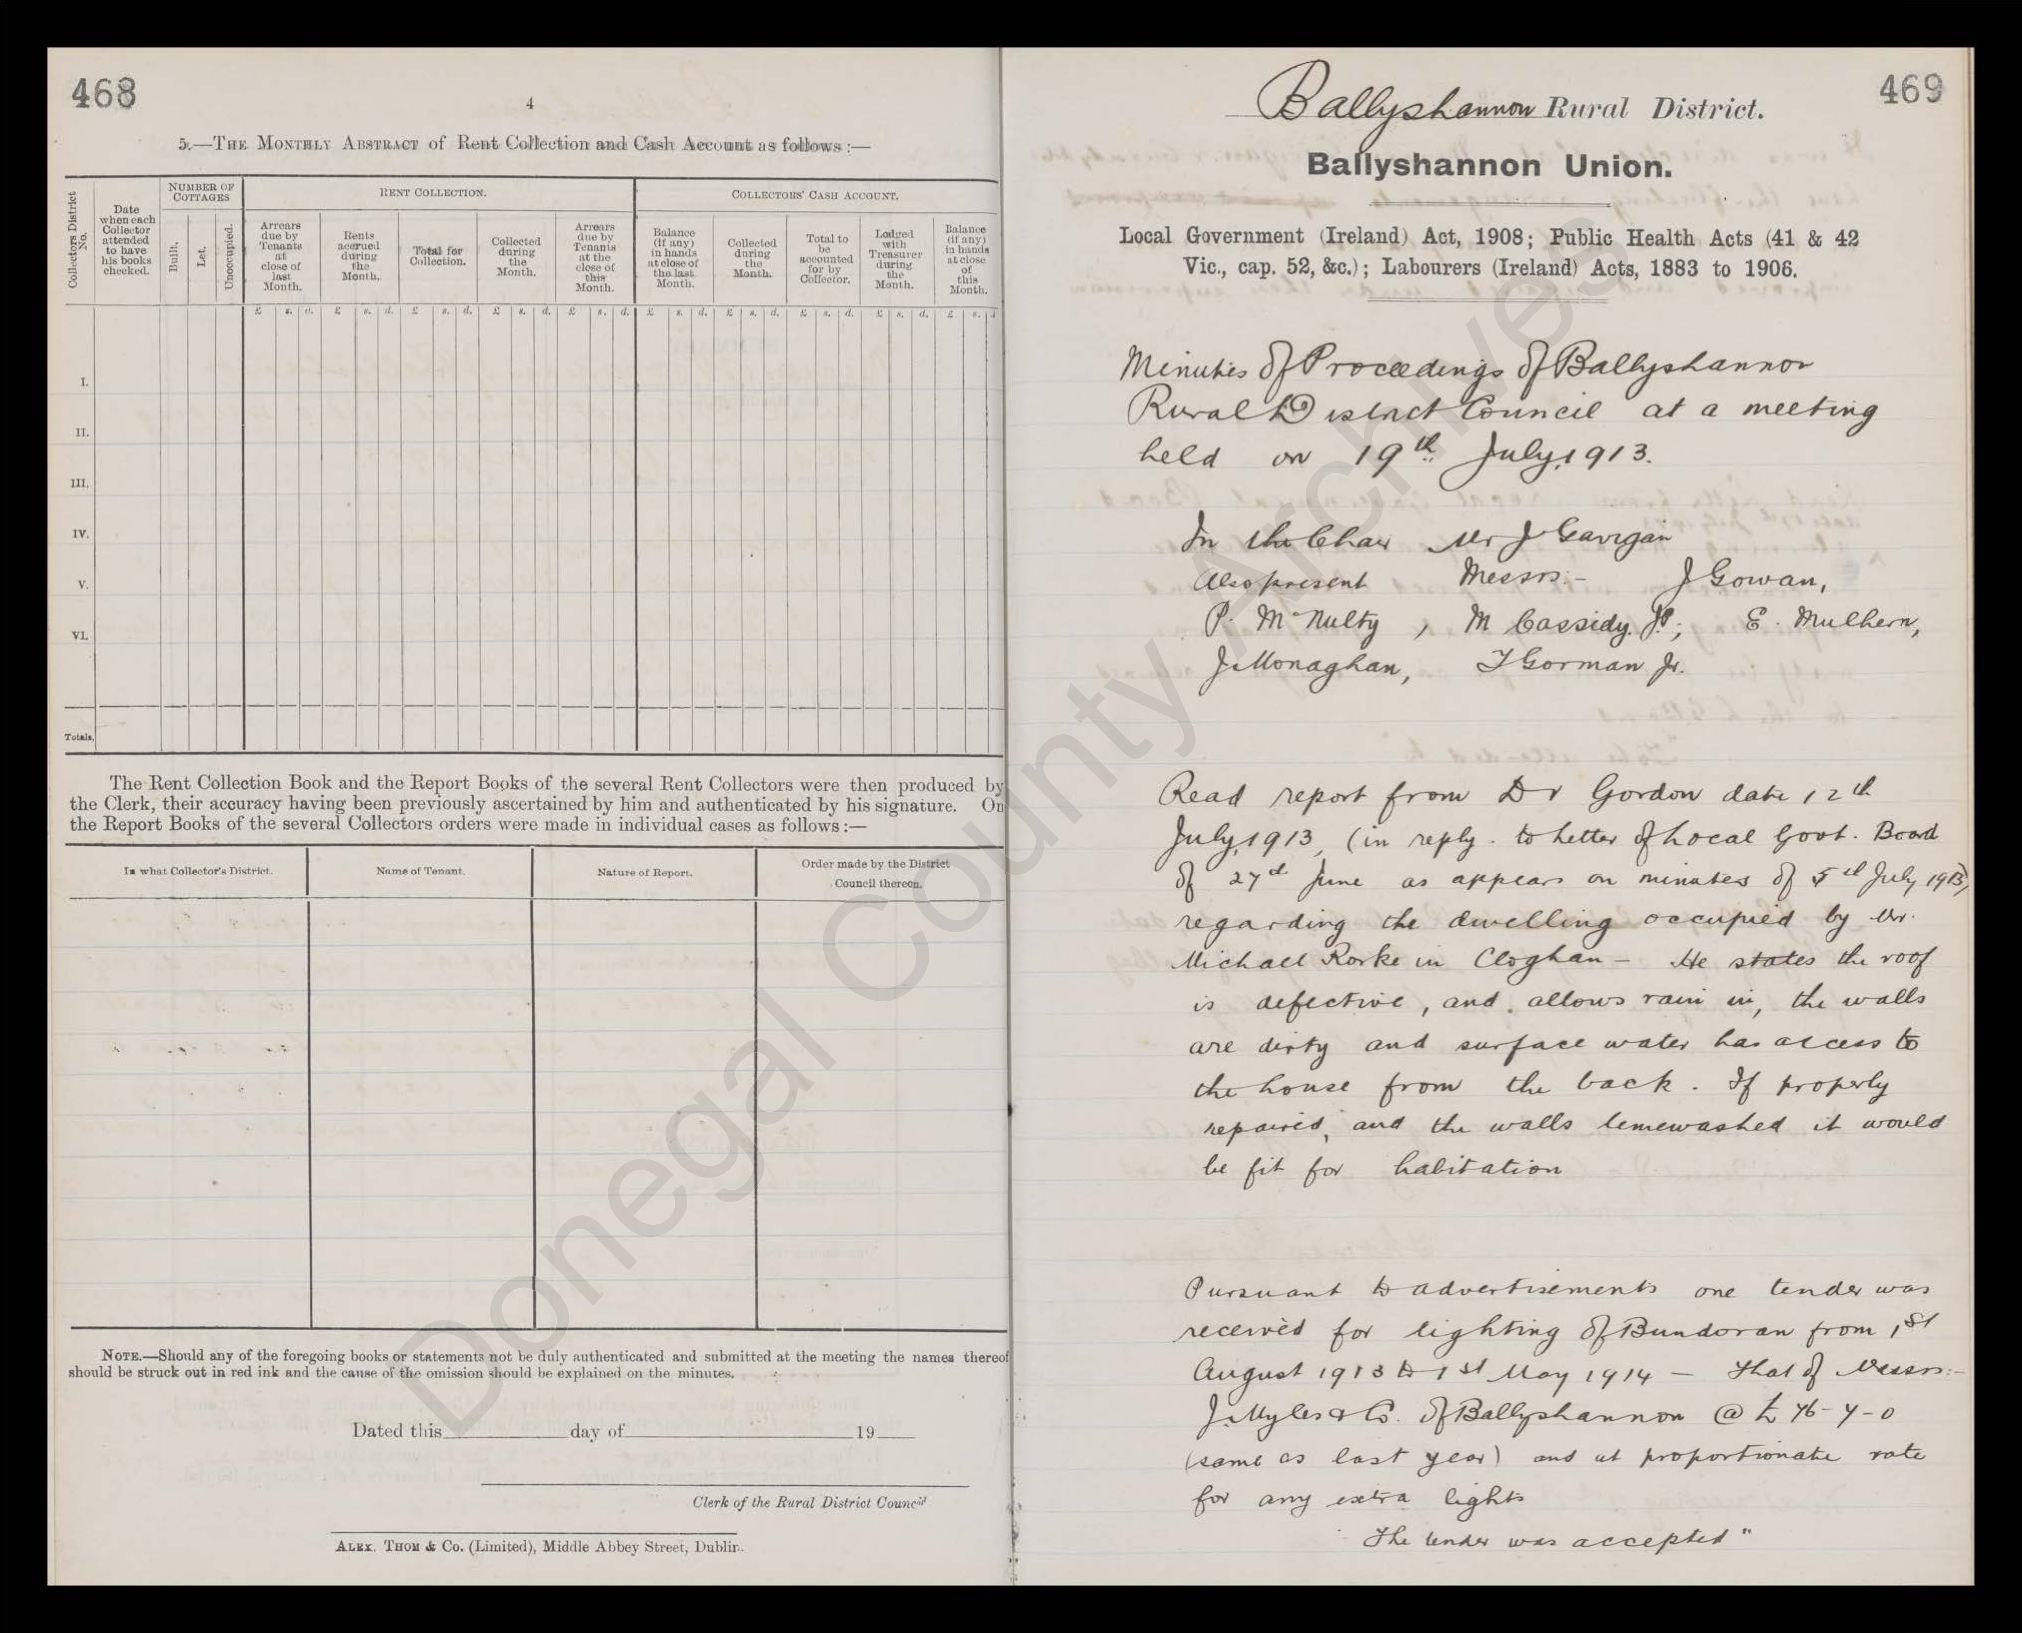 468
4
5.—THE MONTHLY ABSTRACT of Rent Collection and Cash Account as follows :—
Collectors District No.
Date when each Collector attended to have his books checked.
NUMBER OF COTTAGES
Built.
Let.
Unoccupied.
RENT COLLECTION.
Arrears due by Tenants at close of last Month.
Rents accrued during the Month.
Total for Collection.
Collected during the Month.
Arrears due by Tenants at the close of this Month.
COLLECTORS' CASH ACCOUNT.
Balance (if any) in hands at close of the last Month.
Collected during the Month.
Total to be accounted for by Collector.
Lodged with Treasurer during the Month.
Balance (if any) in hands at close of this Month.
£ s. d. £ s. d. £ s. d. £ s. d. £ s. d. £ s. d. £ s. d. £ s. d. £ s. d. £ s. d
I.
II.
III.
IV.
V.
VI.
Totals,
The Rent Collection Book and the Report Books of the several Rent Collectors were then produced by
the Clerk, their accuracy having been previously ascertained by him and authenticated by his signature. On
the Report Books of the several Collectors orders were made in individual cases as follows :—
In what Collector's District.
Name of Tenant.
Nature of Report.
Order made by the District Council thereon.
NOTE.—Should any of the foregoing books or statements not be duly authenticated and submitted at the meeting the names thereof
should be struck out in red ink and the cause of the omission should be explained on the minutes.
Dated this day of 19
Clerk of the Rural District Council
ALEX. THOM & Co. (Limited), Middle Abbey Street, Dublin.
469
Ballyshannon Rural District.
Ballyshannon Union.
Local Government (Ireland) Act, 1908; Public Health Acts (41 & 42
Vic., cap. 52, &c.); Labourers (Ireland) Acts, 1883 to 1906.
Minutes of Proceedings of Ballyshannon
Rural District Council at a meeting
held on 19th July, 1913.
In the Chair Mr J Gavigan
Also present Messrs:- J Gowan,
P. McNulty, M Cassidy J.P.; E. Mulhern,
J. Monaghan, T Gorman Jr.
Read report from Dr Gordon date 12th
July, 1913, (in reply to Letter of Local Govt. Board
of 27th June as appears on minutes of 5th July 1913)
regarding the dwelling occupied by Mr.
Michael Rorke in Cloghan - He states the roof
is defective, and allows rain in, the walls
are dirty and surface water has access to
the house from the back. If properly
repaired, and the walls limewashed it would
be fit for habitation
Pursuant to advertisements one tender was
received for lighting of Bundoran from 1st
August 1913 to 1st May 1914 - that of Messrs:-
J. Myles & Co. of Ballyshannon @ £
(same as last year) and at proportionate rate
for any extra lights
The tender was accepted"
Donegal County Archives